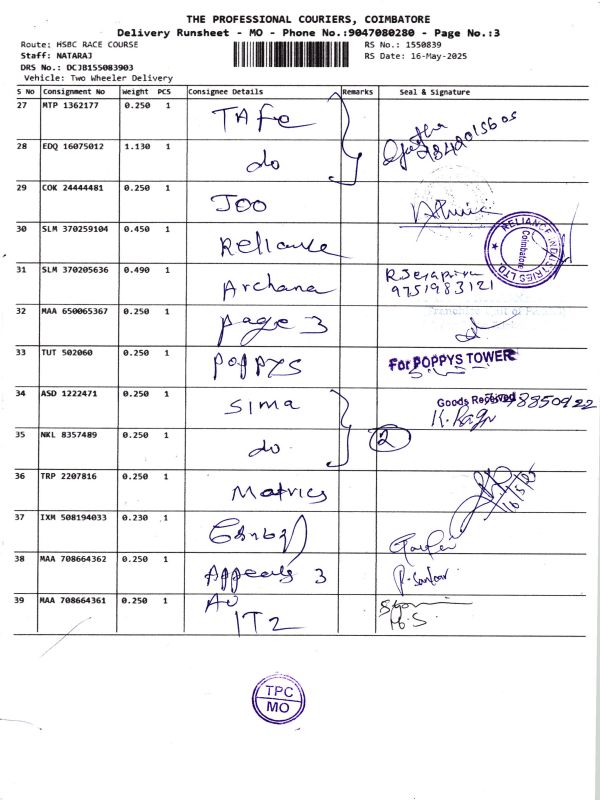 THE PROFESSIONAL COURIERS, COIMBATORE
Delivery Runsheet - MO - Phone No.:9047080280 - Page No.:3
Route: HSBC RACE COURSE
RS No.: 1550839
Staff: NATARAJ
RS Date: 16-May-2025
DRS No.: DCJB155083903
Vehicle: Two Wheeler Delivery
S No Consignment No Weight PCS Consignee Details Remarks Seal & Signature
27 MTP 1362177 0.250 1 TAFe
28 EDQ 16075012 1.130 1 do
29 COK 24444481 0.250 1 JOO
30 SLM 370259104 0.450 1 Reliance
RELIANCE INDUSTRIES LTD
Coimbatore
31 SLM 370205636 0.490 1 Archana
9751983121
32 MAA 650065367 0.250 1 page 3
33 TUT 502060 0.250 1 poppys For POPPYS TOWER
34 ASD 1222471 0.250 1 Sima Goods Received
35 NKL 8357489 0.250 1 do 2
36 TRP 2207816 0.250 1 Matrics
16/5/25
37 IXM 508194033 0.230 1
38 MAA 708664362 0.250 1 Appeals 3
39 MAA 708664361 0.250 1
IT2
TPC
MO